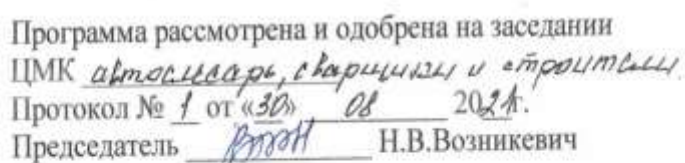 Программа рассмотрена и одобрена на заседании
ЦМК автослесарь, сварщики и строители
Протокол № 1 от «30» 08 2021г.
Председатель Н.В.Возникевич